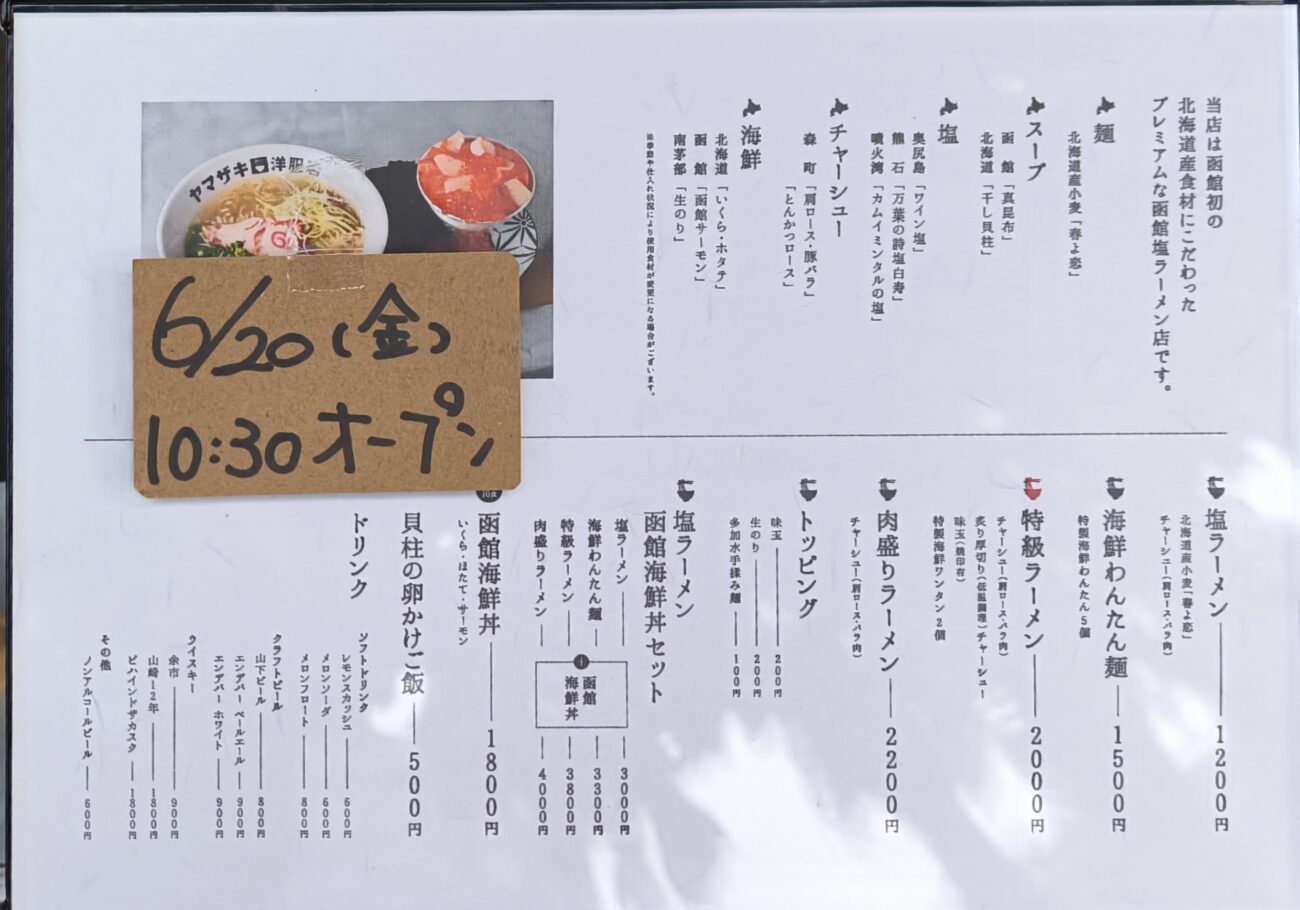 当店は函館初の
北海道産食材にこだわった
プレミアムな函館塩ラーメン店です。
麺
北海道産小麦「春よ恋」
スープ
函 館「真昆布」
北海道「干し貝柱」
塩
奥尻島「ワイン塩」
熊 石「万葉の詩塩白寿」
噴火湾「カムイミンタルの塩」
チャーシュー
森 町「肩ロース・豚バラ」
「とんかつロース」
海鮮
北海道「いくら・ホタテ」
函 館「函館サーモン」
南茅部「生のり」
※季節や仕入れ状況により使用食材が変更になる場合がございます。
ヤマザキ洋服店
6/20(金)
10:30オープン
塩ラーメン 1200円
北海道産小麦「春よ恋」
チャーシュー(肩ロース・バラ肉)
海鮮わんたん麺 1500円
特製海鮮わんたん5個
特級ラーメン 2000円
チャーシュー(肩ロース・バラ肉)
炙り厚切り(低温調理)チャーシュー
味玉(焼印有)
特製海鮮ワンタン2個
肉盛りラーメン 2200円
チャーシュー(肩ロース・バラ肉)
トッピング
味玉 200円
生のり 200円
多加水手揉み麺 100円
塩ラーメン
函館海鮮丼セット
塩ラーメン 3000円
海鮮わんたん麺 3300円
特級ラーメン 3800円
肉盛りラーメン 4000円
函館
海鮮丼
函館海鮮丼 1800円
いくら・ほたて・サーモン
貝柱の卵かけご飯 500円
ドリンク
ソフトドリンク
レモンスカッシュ 600円
メロンソーダ 600円
メロンフロート 800円
クラフトビール
山下ビール 800円
エンデバー ペールエール 900円
エンデバー ホワイト 900円
ウイスキー
余市 900円
山崎12年 1800円
ビハインドザカスク 1800円
その他
ノンアルコールビール 600円